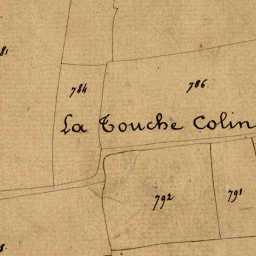 784
786
La Touche Colin
792
791